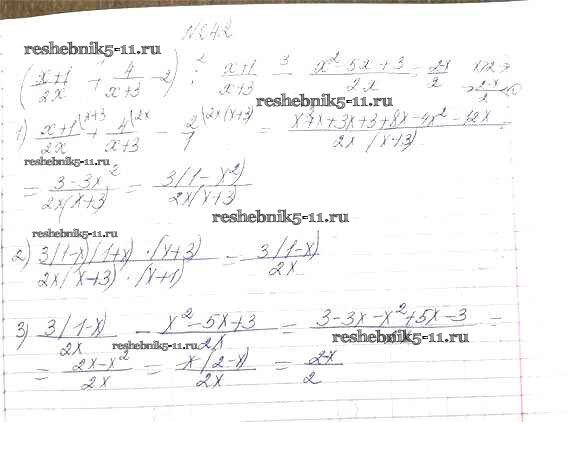 № 642
reshebnik5-11.ru
(x+1/2x + 4/x+3 - 2) : x+1/x+3 - x² - 5x + 3/2x = 2-x/2
reshebnik5-11.ru
1) x+1/2x \x+3 + 4/x+3 \2x - 2/1 \2x(x+3) = x²+x+3x+3+8x-4x²-12x/2x(x+3) =
reshebnik5-11.ru
= 3-3x²/2x(x+3) = 3(1-x²)/2x(x+3)
reshebnik5-11.ru
reshebnik5-11.ru
2) 3(1-x)(1+x)·(x+3)/2x(x+3)·(x+1) = 3(1-x)/2x
3) 3(1-x)/2x - x²-5x+3/2x = 3-3x-x²+5x-3/2x =
reshebnik5-11.ru
reshebnik5-11.ru
= 2x-x²/2x = x(2-x)/2x = 2-x/2